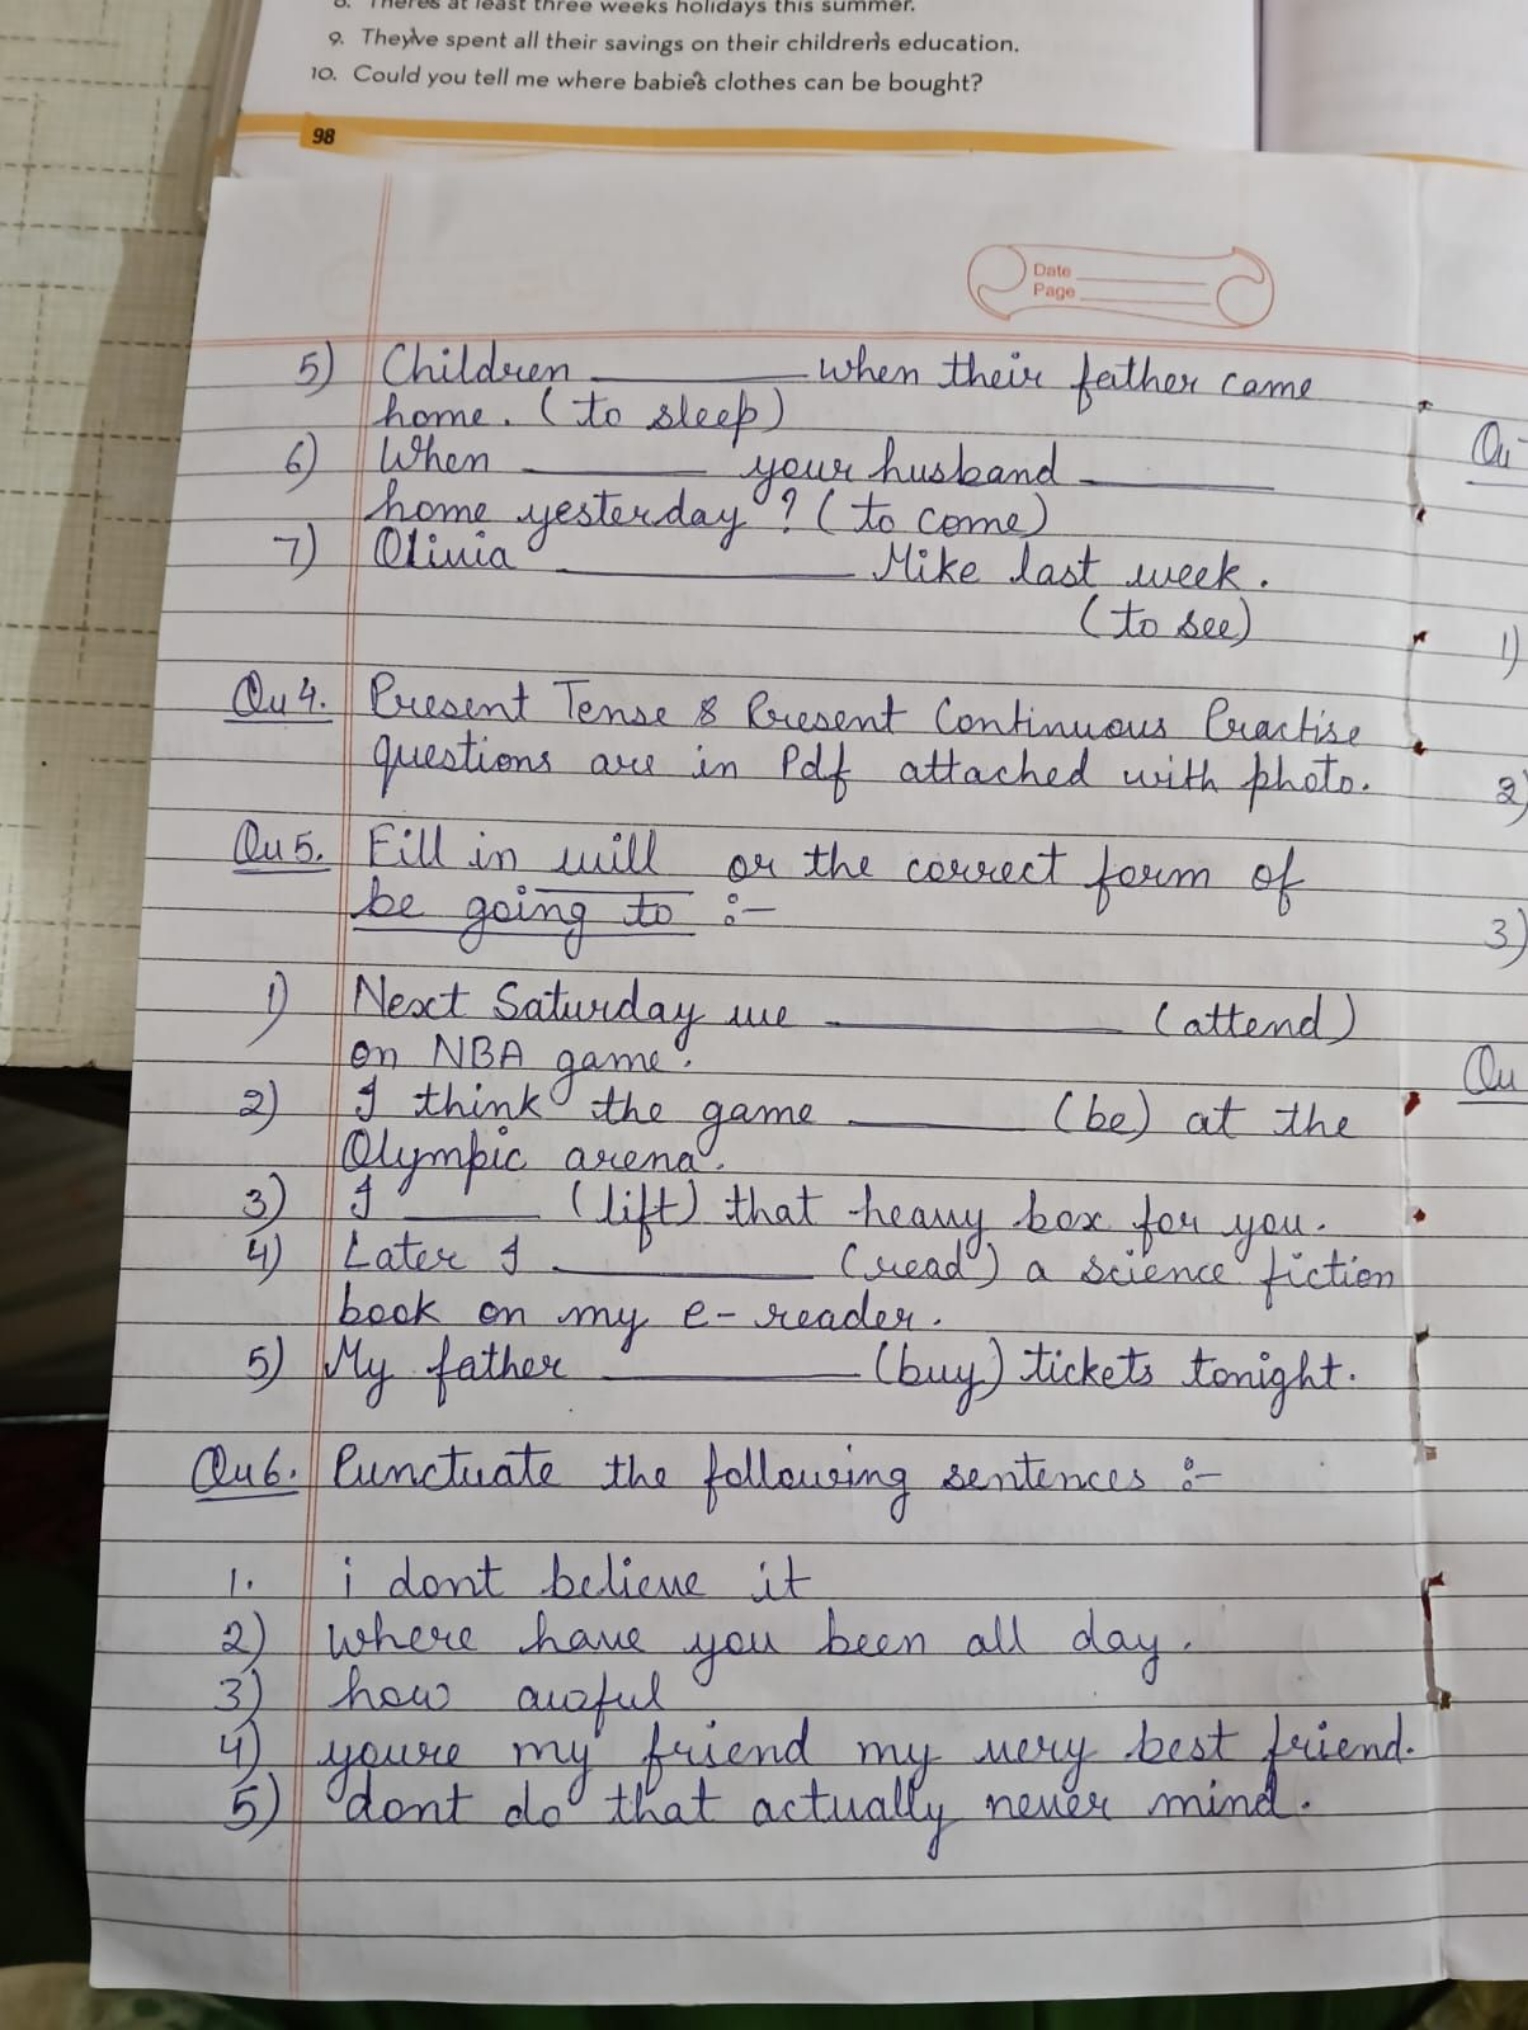 8. There's at least three weeks holidays this summer.
9. They've spent all their savings on their children's education.
10. Could you tell me where babie's clothes can be bought?
98
Date
Page
5) Children ______ when their father came
home. (to sleep)
6) When ______ your husband ______
home yesterday? (to come)
7) Olivia ______ Mike last week.
(to see)
Qu 4. Present Tense & Present Continuous Practise
questions are in Pdf attached with photo.
Qu 5. Fill in will or the correct form of
be going to :-
1) Next Saturday we ______ (attend)
on NBA game.
2) I think the game ______ (be) at the
Olympic arena.
3) I ______ (lift) that heavy box for you.
4) Later I ______ (read) a science fiction
book on my e-reader.
5) My father ______ (buy) tickets tonight.
Qu 6. Punctuate the following sentences :-
1. i dont believe it
2) where have you been all day.
3) how awful
4) youre my friend my very best friend.
5) dont do that actually never mind.
Qu
1)
2)
3)
Qu